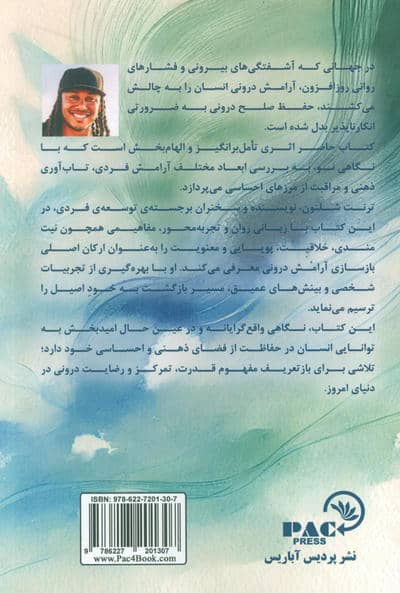 در جهانی که آشفتگی‌های بیرونی و فشارهای
روانی روزافزون، آرامش درونی انسان را به چالش
می‌کشند، حفظ صلح درونی به ضرورتی
انکارناپذیر بدل شده است.
کتاب حاضر اثری تأمل‌برانگیز و الهام‌بخش است که با
نگاهی نو، به بررسی ابعاد مختلف آرامش فردی، تاب‌آوری
ذهنی و مراقبت از مرزهای احساسی می‌پردازد.
ترنت شلتون، نویسنده و سخنران برجسته‌ی توسعه‌ی فردی، در
این کتاب با زبانی روان و تجربه‌محور، مفاهیمی همچون نیت
مندی، خلاقیت، پویایی و معنویت را به‌عنوان ارکان اصلی
بازسازی آرامش درونی معرفی می‌کند. او با بهره‌گیری از تجربیات
شخصی و بینش‌های عمیق، مسیر بازگشت به خودِ اصیل را
ترسیم می‌نماید.
این کتاب، نگاهی واقع‌گرایانه و در عین حال امیدبخش به
توانایی انسان در حفاظت از فضای ذهنی و احساسی خود دارد؛
تلاشی برای بازتعریف مفهوم قدرت، تمرکز و رضایت درونی در
دنیای امروز.
ISBN: 978-622-7201-30-7
9 786227 201307
www.Pac4Book.com
PAC
PRESS
نشر پردیس آباریس